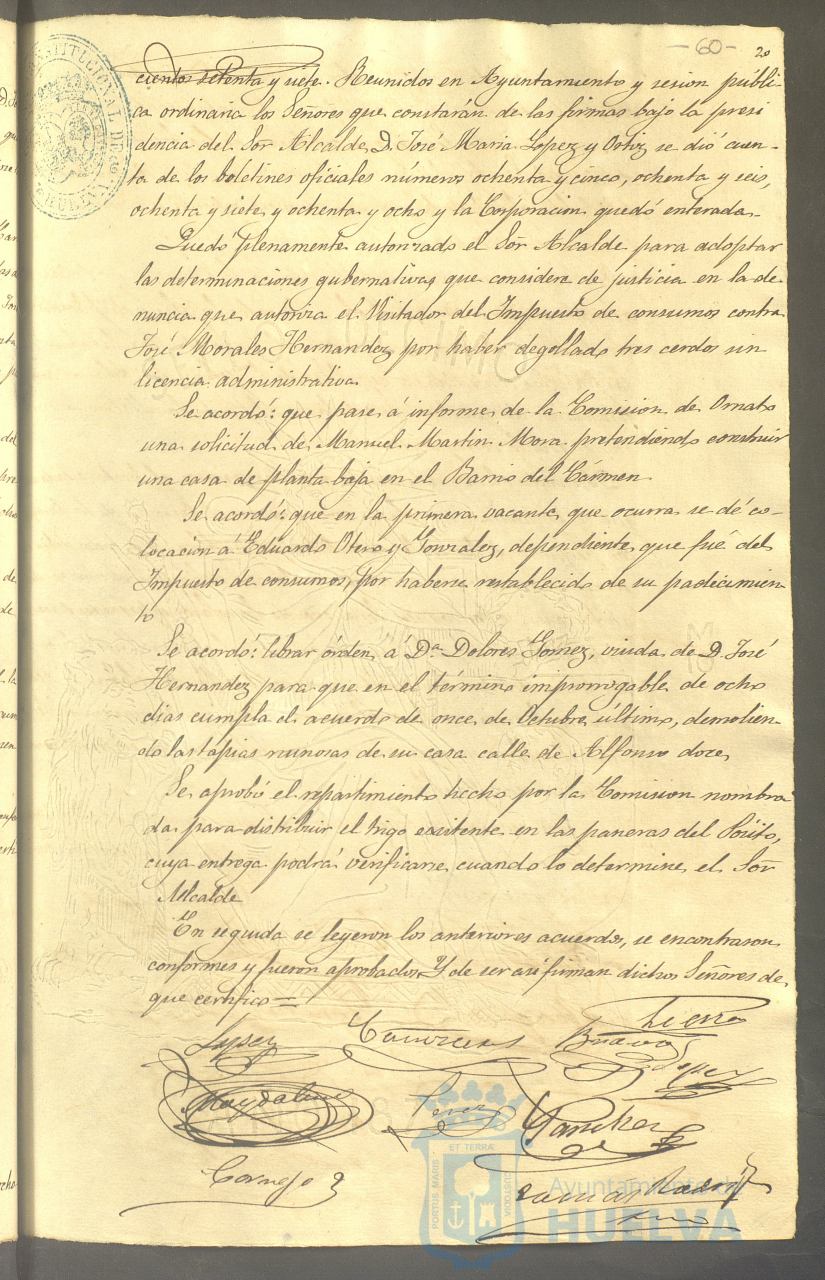 -60-
20
cientos setenta y siete. Reunidos en Ayuntamiento y sesion públi-
ca ordinaria los Señores que constarán de las firmas bajo la presi
dencia del Sõr Alcalde, D. José Maria Lopez y Ortiz se dió cuen-
ta de los boletines oficiales números ochenta y cinco, ochenta y seis,
ochenta y siete y ochenta y ocho y la Corporacion quedó enterada.
Quedó plenamente autorizado el Sõr Alcalde para adoptar
las determinaciones gubernativas que considere de justicia en la de
nuncia que autoriza el Visitador del Impuesto de consumos contra
José Morales Hernandez por haber degollado tres cerdos sin
licencia administrativa.
Se acordó: que pase á informe de la Comision de Ornato
una solicitud de Manuel Martin Mora pretendiendo construir
una casa de planta baja en el Barrio del Cármen.
Se acordó: que en la primera vacante que ocurra se dé co-
locacion á Eduardo Otero y Gonzalez, dependiente que fué del
Impuesto de consumos, por haberse restablecido de su padecimien
to
Se acordó: librar órden á Dª Dolores Gomez, viuda de D. José
Hernandez para que en el término improrrogable de ocho
dias cumpla el acuerdo de once de Octubre último, demolien
do las tapias ruinosas de su casa calle de Alfonso doce.
Se aprobó el repartimiento hecho por la Comision nombra
da para distribuir el trigo existente en las paneras del Pósito,
cuya entrega podrá verificarse cuando lo determine el Sõr
Alcalde
En seguida se leyeron los anteriores acuerdos, se encontraron
conformes y fueron aprobados. Y de ser asi firman dichos Señores de
que certifico =
Lopez
Bravo
Lopez
Magdaleno
Perez
Sanchez
Cornejo
ET TERRÆ
PORTUS MARIS
CUSTODIA
Ayuntamiento de
HUELVA